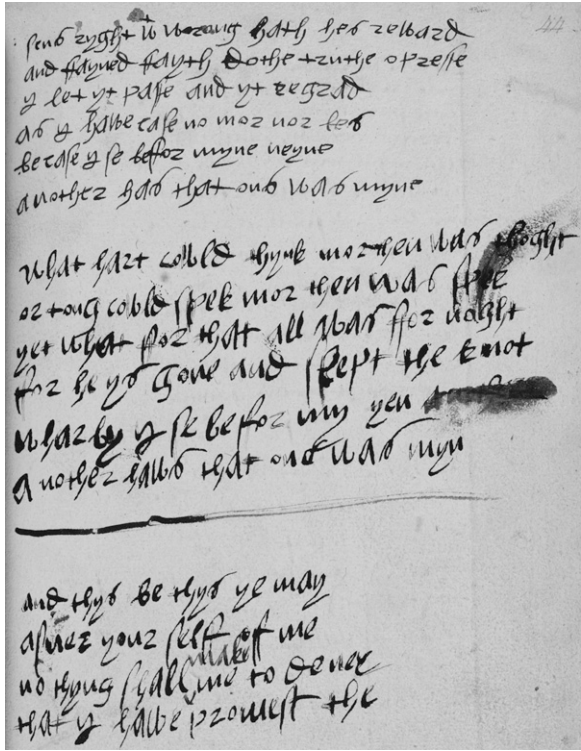 44
sens ryght to worong hath hes reward
and fayned fayth dothe truthe opresse
y let yt pase and yt regrad
as y hawe case no mor nor les
be case y se beffor myne neyne
another has that ons was myne
what hart cowld thynk mor then was thoght
or tong cowld spek mor then was spek
yet what for that all was for noght
for he ys gone and slept the knot
whar by y se be for my yen
a nother haws that one was myn
and thys be thys ye may
asuer your self off me
no thyng shall make me to dener
that y hawe promest the